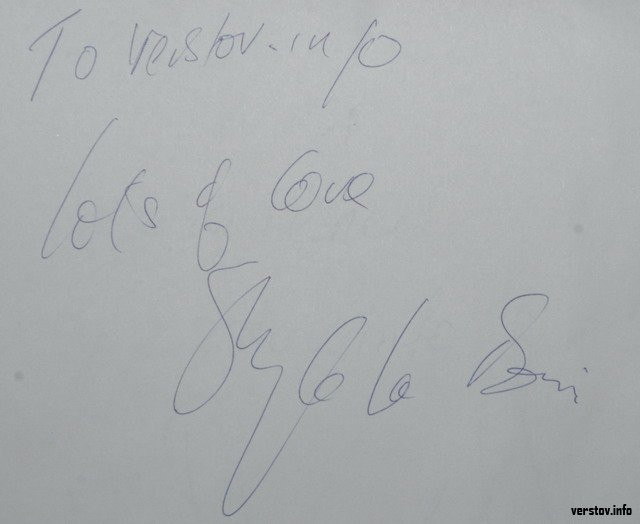 To verstov.info
lots of love
verstov.info